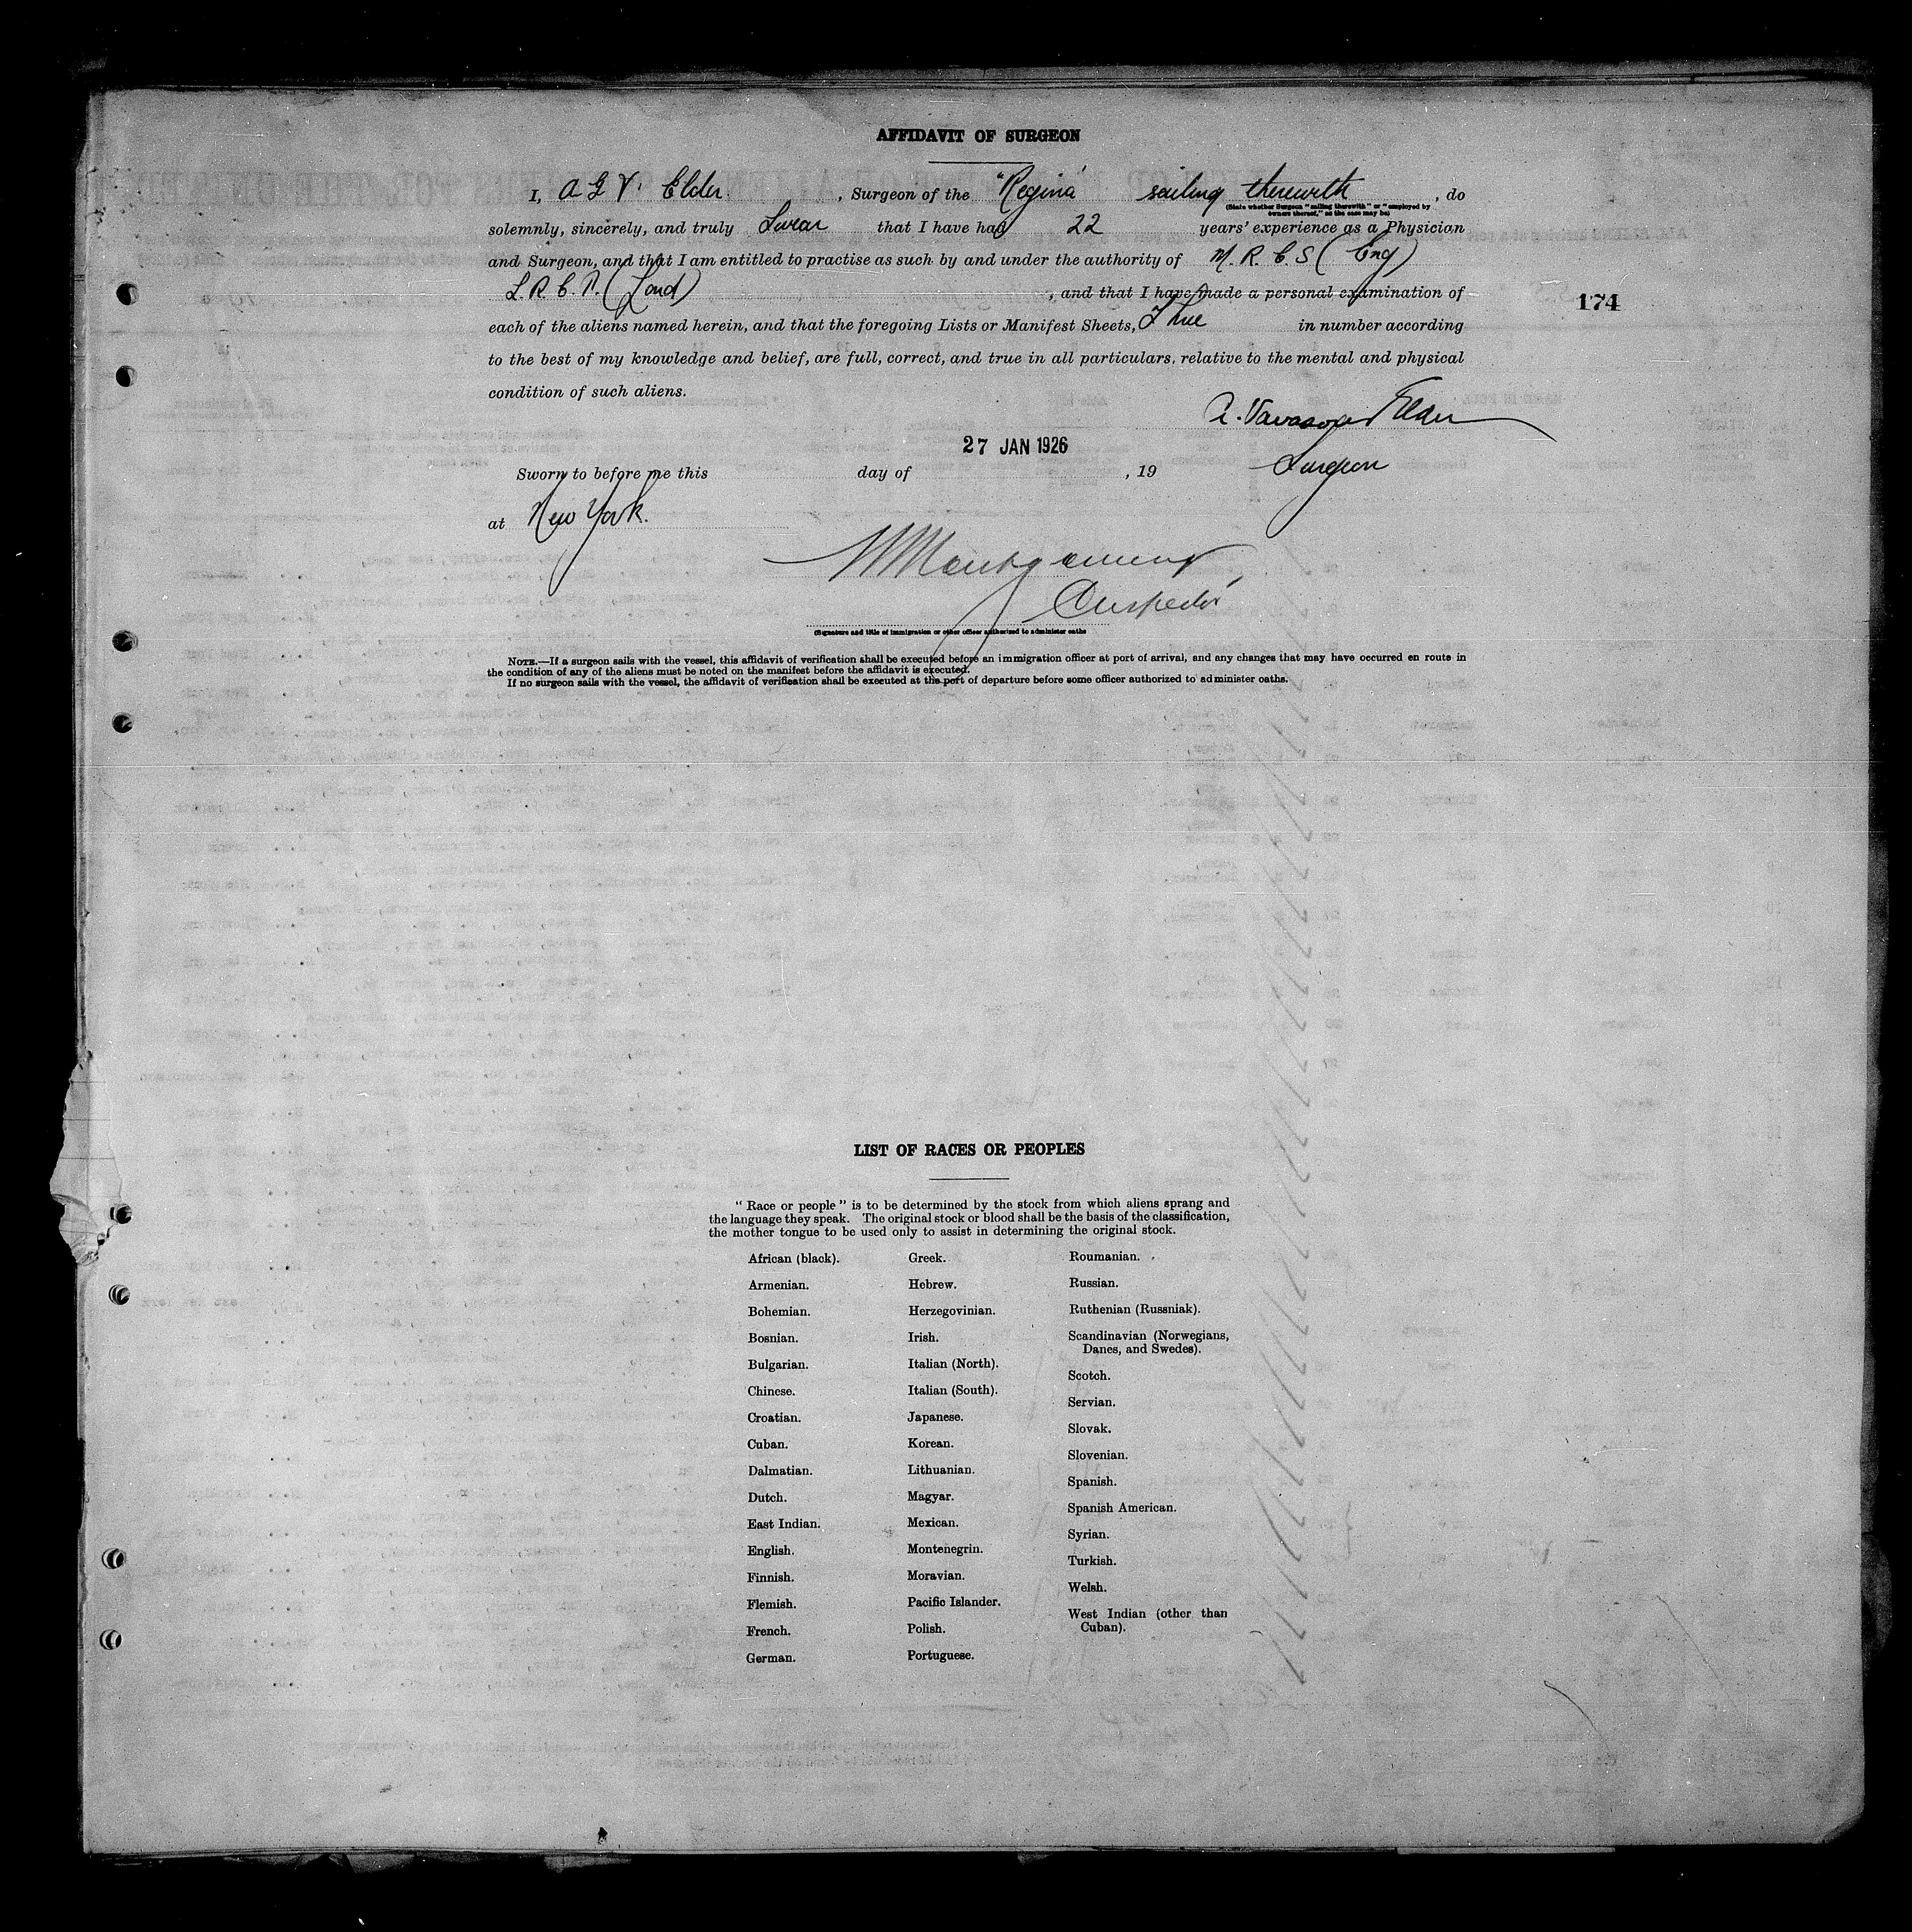 AFFIDAVIT OF SURGEON
I, A G V. Elder , Surgeon of the "Regina" sailing therewith , do
(State whether Surgeon "sailing therewith" or "employed by
owners thereof," as the case may be)
solemnly, sincerely, and truly Swear that I have had 22 years' experience as a Physician
and Surgeon, and that I am entitled to practise as such by and under the authority of M. R. C. S (Eng)
L. R. C. P. (Lond) , and that I have made a personal examination of
174
each of the aliens named herein, and that the foregoing Lists or Manifest Sheets, Three in number according
to the best of my knowledge and belief, are full, correct, and true in all particulars, relative to the mental and physical
condition of such aliens.
A. Vavasour Elder
27 JAN 1926
Sworn to before me this day of , 19 Surgeon
at New York.
Montgomery
Inspector
(Signature and title of immigration or other officer authorized to administer oaths
NOTE.—If a surgeon sails with the vessel, this affidavit of verification shall be executed before an immigration officer at port of arrival, and any changes that may have occurred en route in
the condition of any of the aliens must be noted on the manifest before the affidavit is executed.
If no surgeon sails with the vessel, the affidavit of verification shall be executed at the port of departure before some officer authorized to administer oaths.
LIST OF RACES OR PEOPLES
"Race or people" is to be determined by the stock from which aliens sprang and
the language they speak. The original stock or blood shall be the basis of the classification,
the mother tongue to be used only to assist in determining the original stock.
African (black).
Armenian.
Bohemian.
Bosnian.
Bulgarian.
Chinese.
Croatian.
Cuban.
Dalmatian.
Dutch.
East Indian.
English.
Finnish.
Flemish.
French.
German.
Greek.
Hebrew.
Herzegovinian.
Irish.
Italian (North).
Italian (South).
Japanese.
Korean.
Lithuanian.
Magyar.
Mexican.
Montenegrin.
Moravian.
Pacific Islander.
Polish.
Portuguese.
Roumanian.
Russian.
Ruthenian (Russniak).
Scandinavian (Norwegians,
Danes, and Swedes).
Scotch.
Servian.
Slovak.
Slovenian.
Spanish.
Spanish American.
Syrian.
Turkish.
Welsh.
West Indian (other than
Cuban).